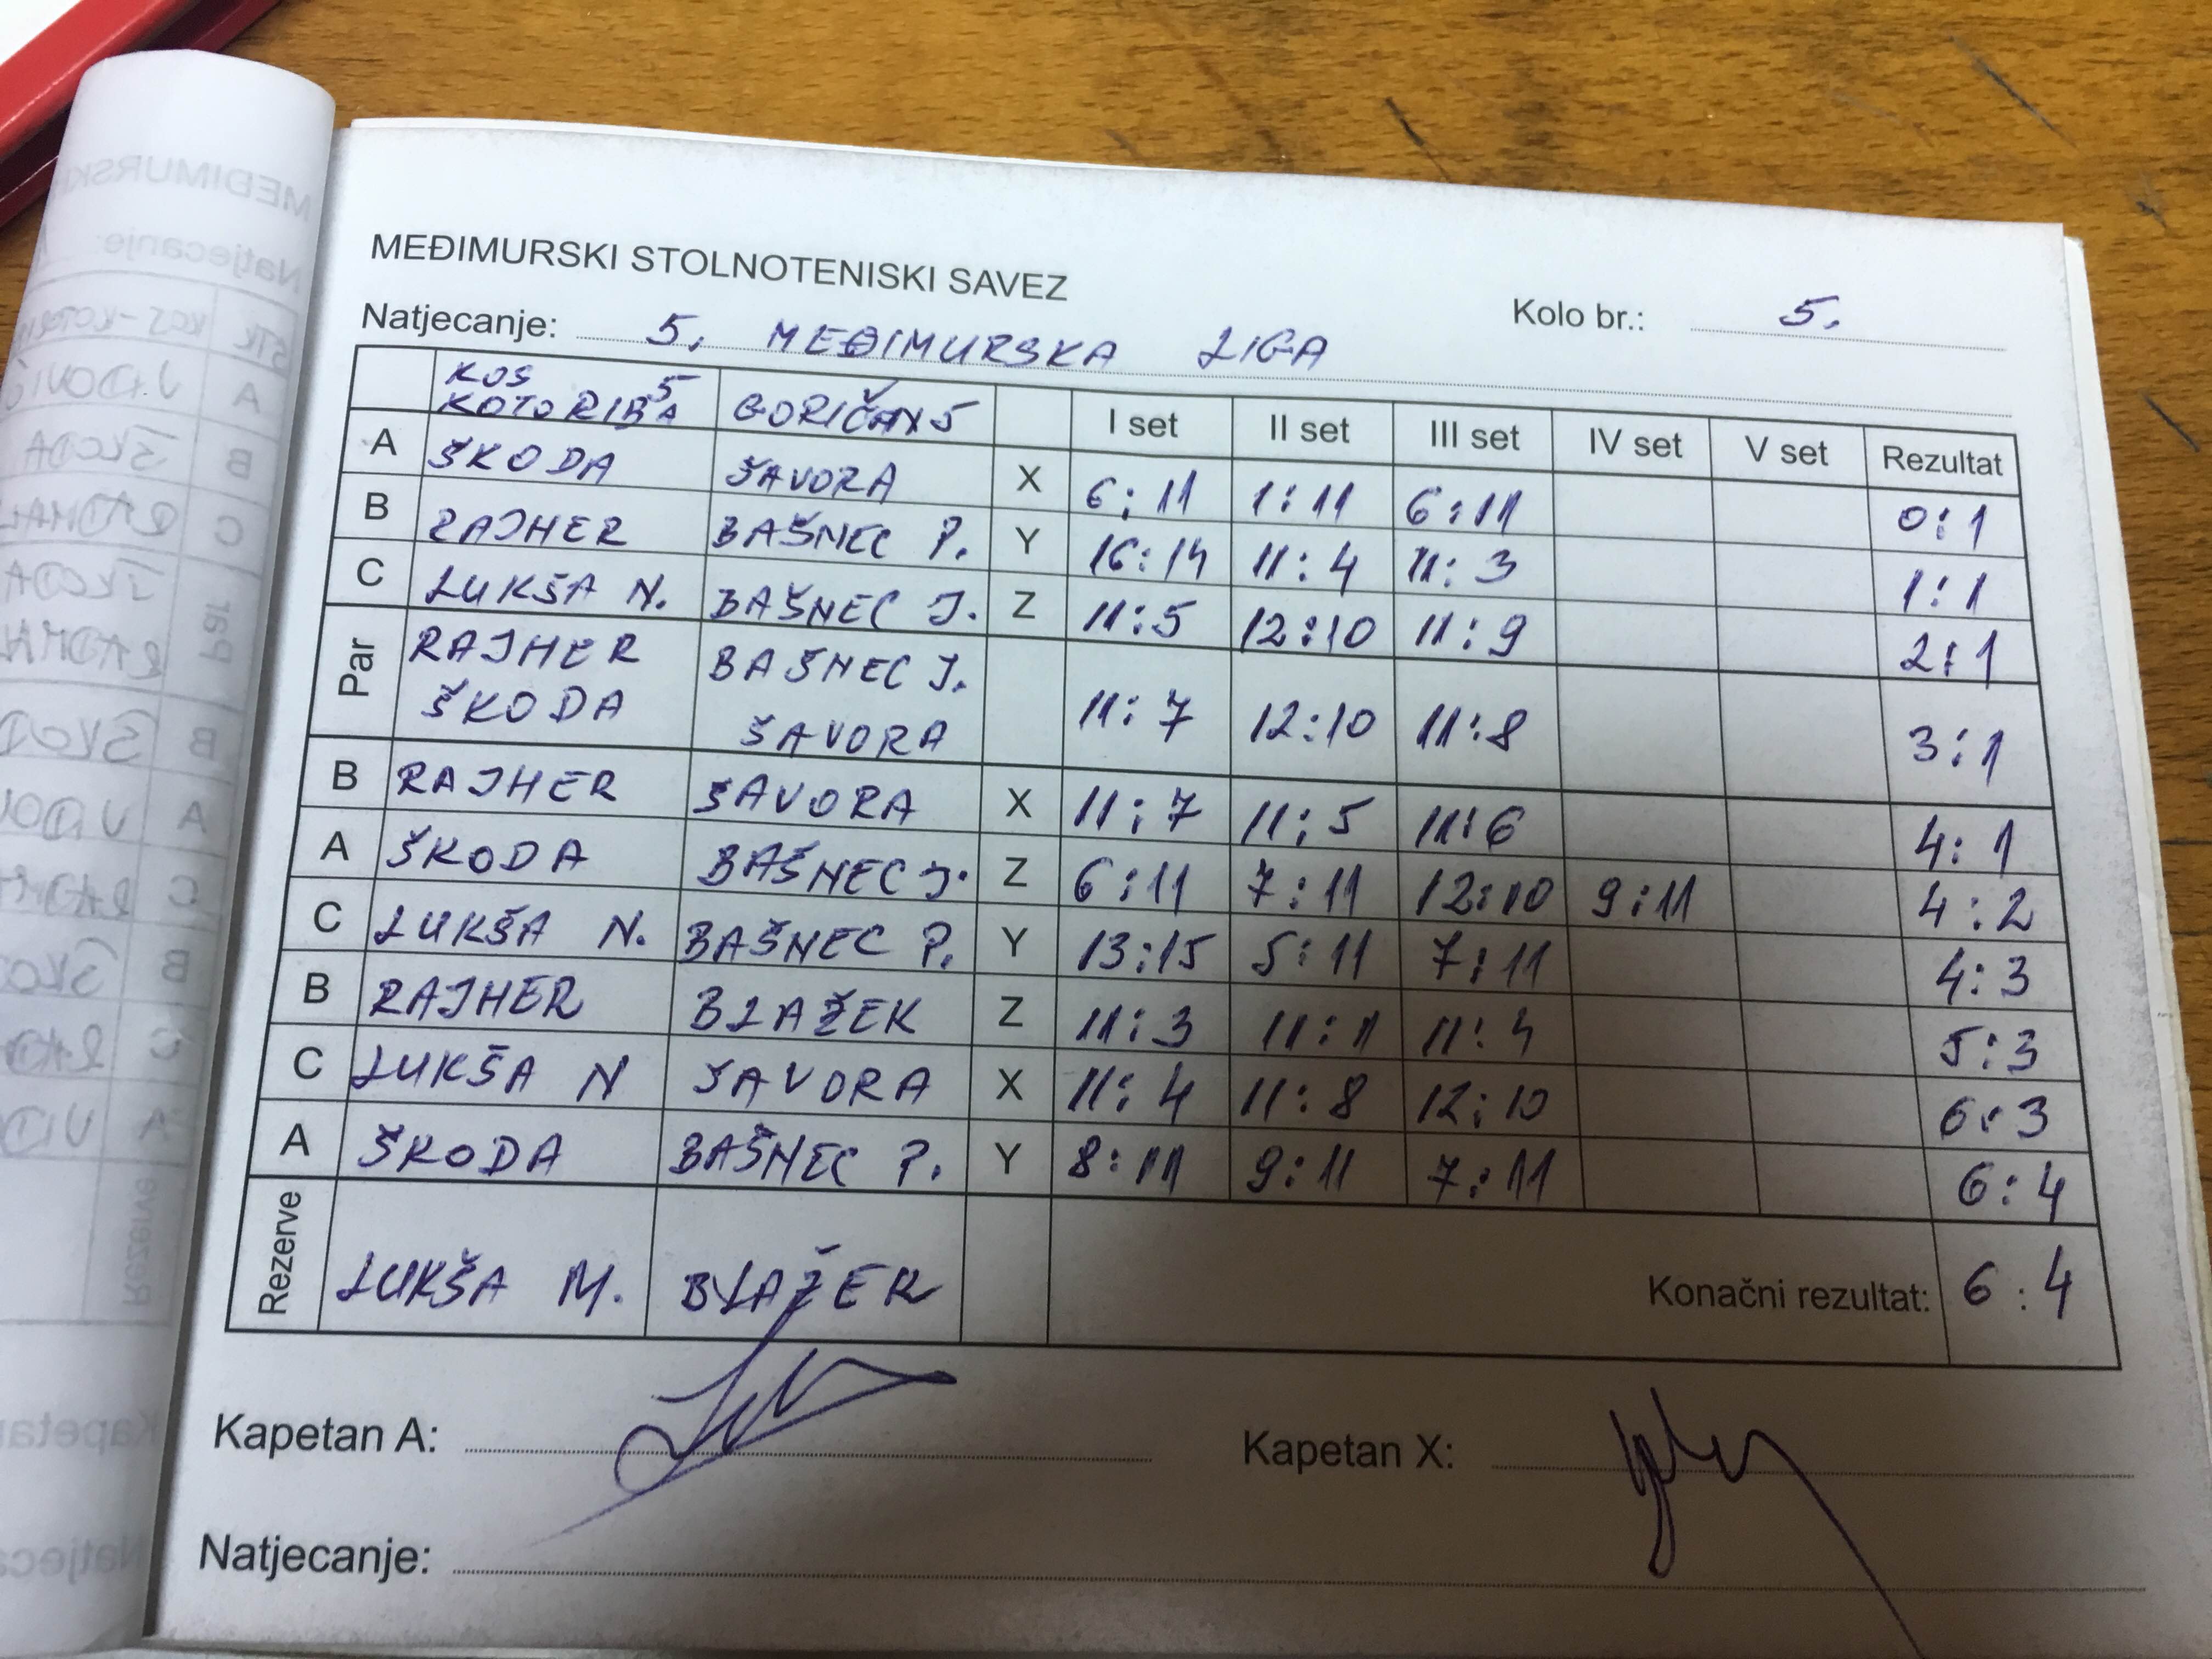 MEĐIMURSKI STOLNOTENISKI SAVEZ
Natjecanje: 5. MEĐIMURSKA LIGA Kolo br.: 5.
KOS KOTORIBA 5 GORIČAN 5 I set II set III set IV set V set Rezultat
A ŠKODA ŠAVORA X 6:11 1:11 6:11 0:1
B RAJHER BAŠNEC P. Y 16:14 11:4 11:3 1:1
C LUKŠA N. BAŠNEC J. Z 11:5 12:10 11:9 2:1
Par RAJHER BAŠNEC J.
ŠKODA ŠAVORA 11:7 12:10 11:8 3:1
B RAJHER ŠAVORA X 11:7 11:5 11:6 4:1
A ŠKODA BAŠNEC J. Z 6:11 7:11 12:10 9:11 4:2
C LUKŠA N. BAŠNEC P. Y 13:15 5:11 7:11 4:3
B RAJHER BLAŽEK Z 11:3 11:1 11:4 5:3
C LUKŠA N ŠAVORA X 11:4 11:8 12:10 6:3
A ŠKODA BAŠNEC P. Y 8:11 9:11 7:11 6:4
Rezerve LUKŠA M. BLAŽEK Konačni rezultat: 6:4
Kapetan A: Kapetan X:
Natjecanje: